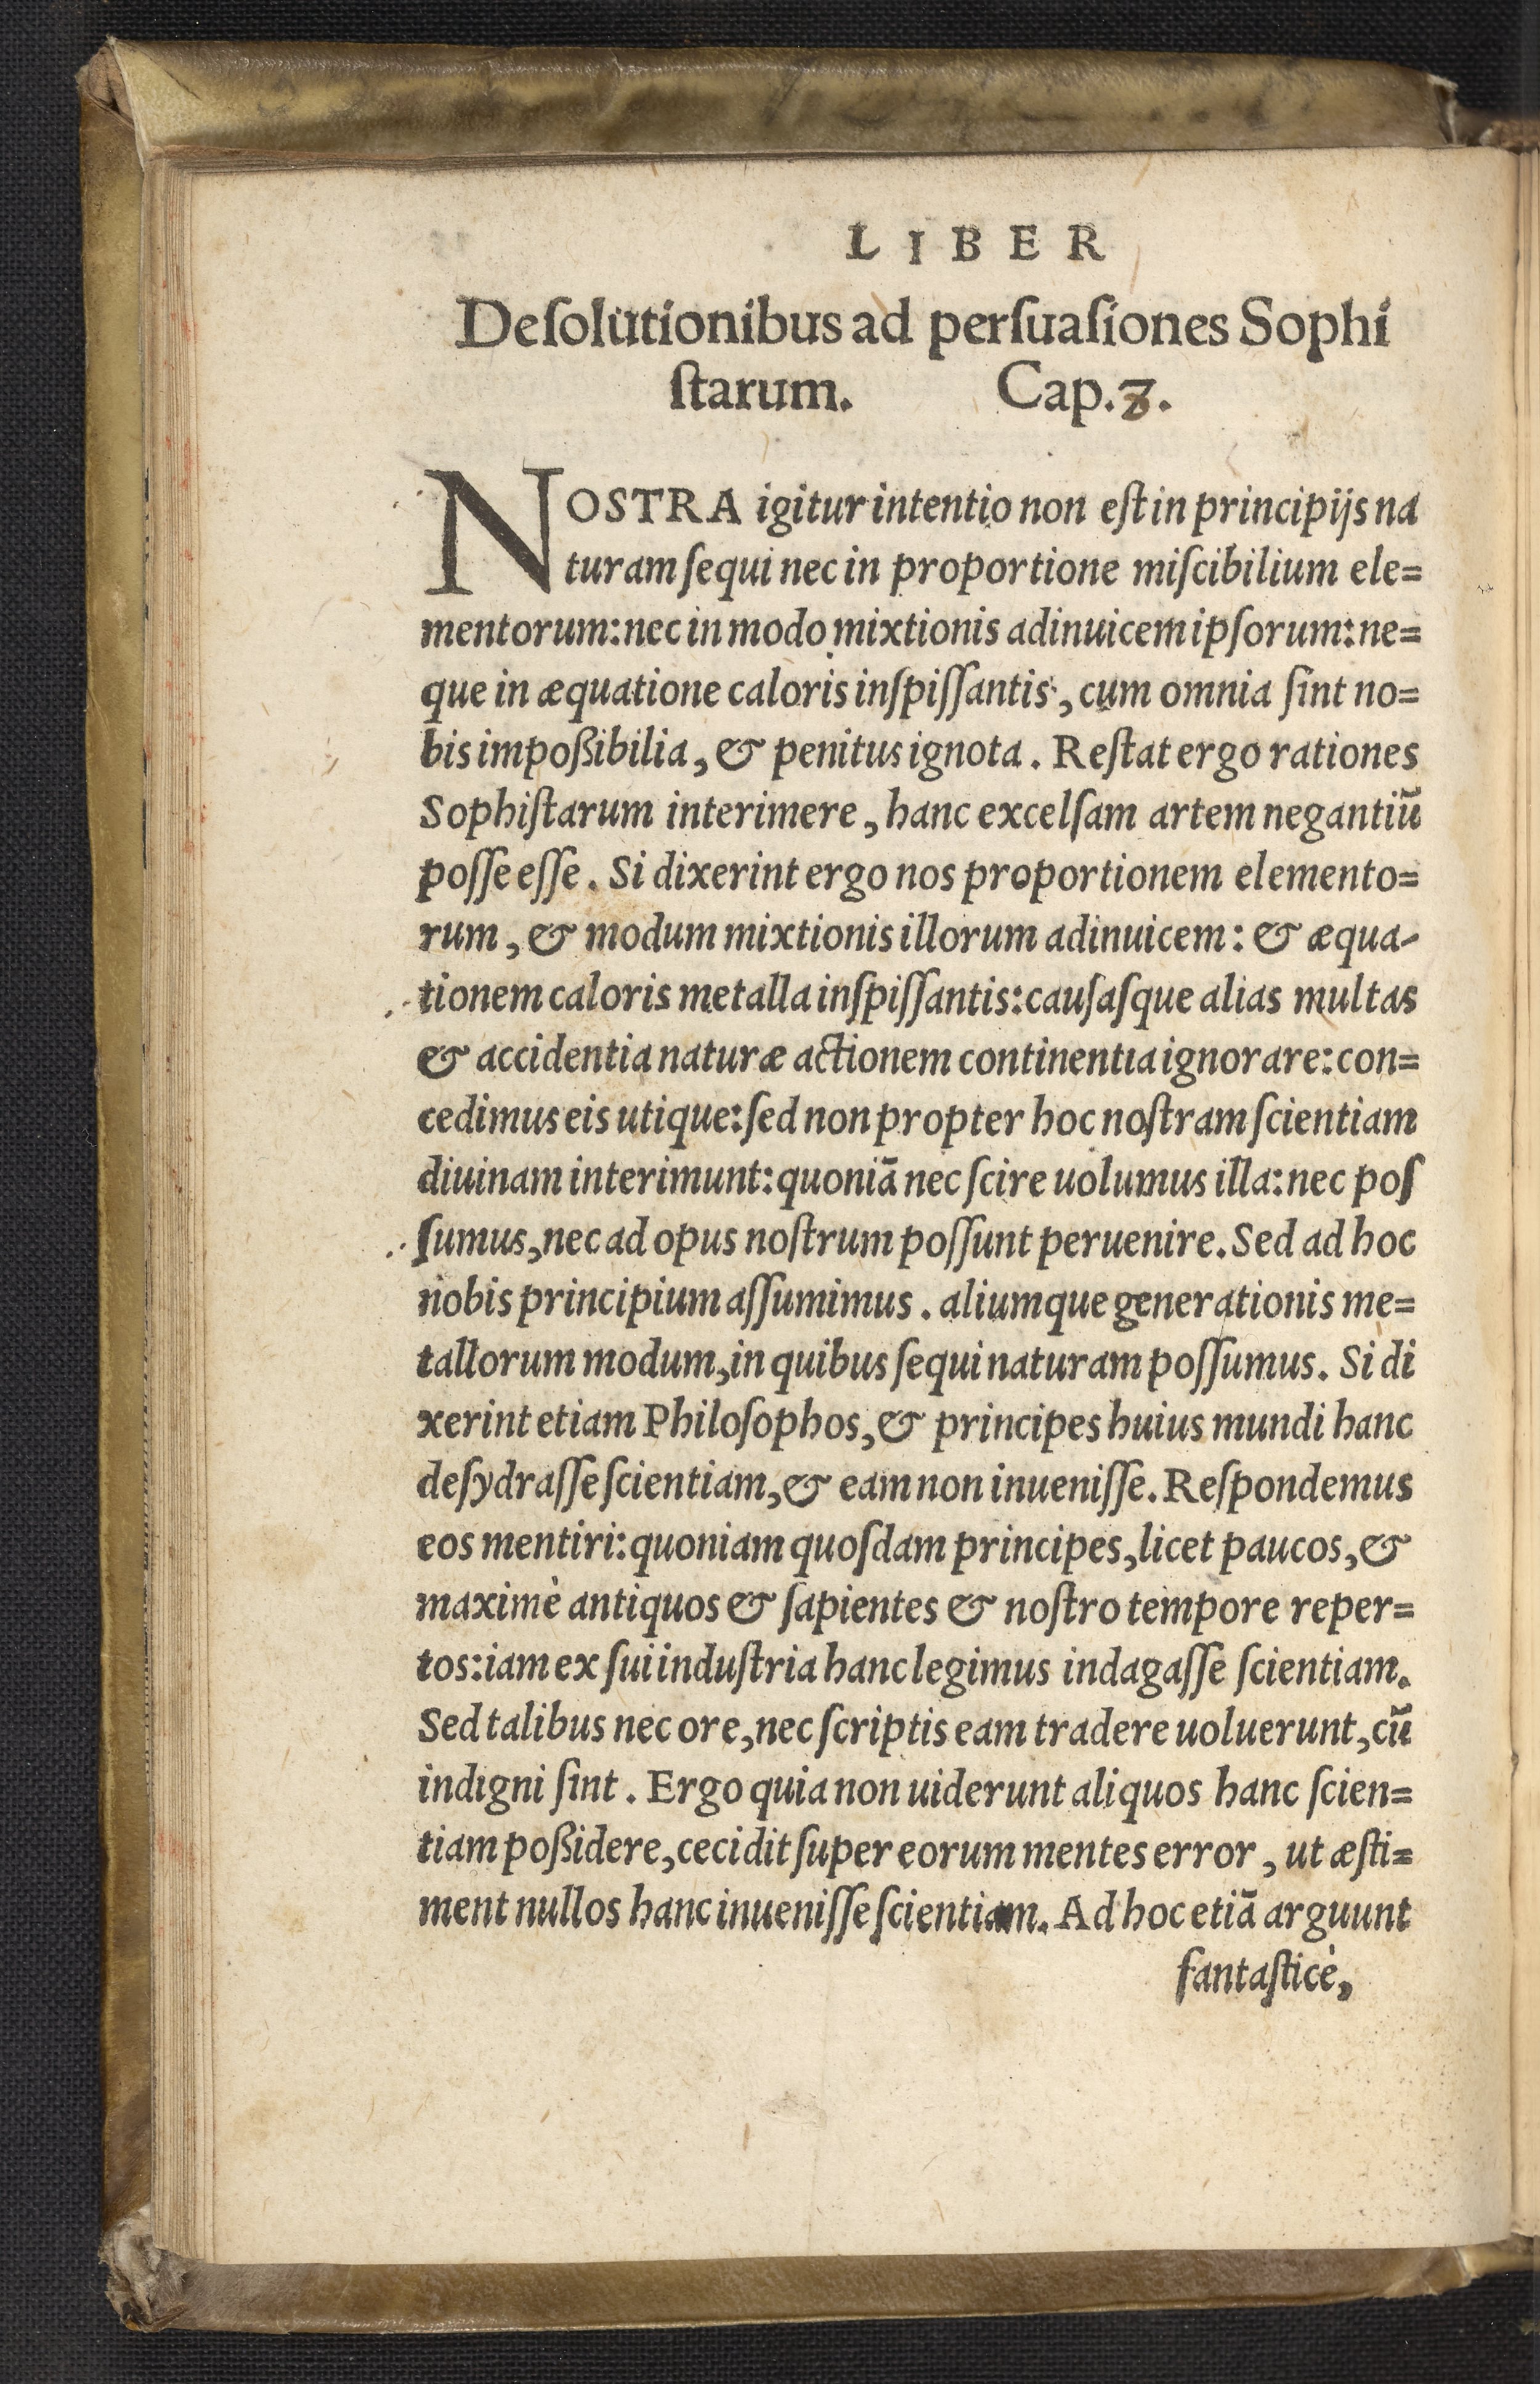 LIBER
De ſolutionibus ad perſuaſiones Sophi
ſtarum. Cap. 3.
NOSTRA igitur intentio non eſt in principijs na
turam ſequi nec in proportione miſcibilium ele=
mentorum: nec in modo mixtionis adinuicem ipſorum: ne=
que in æquatione caloris inſpiſſantis, cum omnia ſint no=
bis impoßibilia, & penitus ignota. Reſtat ergo rationes
Sophiſtarum interimere, hanc excelſam artem negantiū
poſſe eſſe. Si dixerint ergo nos proportionem elemento=
rum, & modum mixtionis illorum adinuicem: & æqua-
tionem caloris metalla inſpiſſantis: cauſaſque alias multas
& accidentia naturæ actionem continentia ignorare: con=
cedimus eis utique: ſed non propter hoc noſtram ſcientiam
diuinam interimunt: quoniā nec ſcire uolumus illa: nec poſ
ſumus, nec ad opus noſtrum poſſunt peruenire. Sed ad hoc
nobis principium aſſumimus. aliumque generationis me=
tallorum modum, in quibus ſequi naturam poſſumus. Si di
xerint etiam Philoſophos, & principes huius mundi hanc
deſydraſſe ſcientiam, & eam non inueniſſe. Reſpondemus
eos mentiri: quoniam quoſdam principes, licet paucos, &
maximè antiquos & ſapientes & noſtro tempore reper=
tos: iam ex ſui induſtria hanc legimus indagaſſe ſcientiam.
Sed talibus nec ore, nec ſcriptis eam tradere uoluerunt, cū
indigni ſint. Ergo quia non uiderunt aliquos hanc ſcien=
tiam poßidere, cecidit ſuper eorum mentes error, ut æſti=
ment nullos hanc inueniſſe ſcientiam. Ad hoc etiā arguunt
fantaſticè,